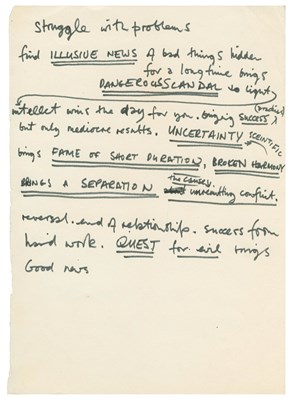 struggle with problems
find ILLUSIVE NEWS of bad things hidden
for a long time brings
DANGEROUS SCANDAL to light
(practical)
intellect wins the day for you. bringing success
but only mediocre results. UNCERTAINTY SCIENTIFIC
brings FAME OF SHORT DURATION, BROKEN HARMONY
BRINGS A SEPARATION the causes unremitting conflict.
reversal. end of relationship. success from
hard work. QUEST for evil brings
Good news